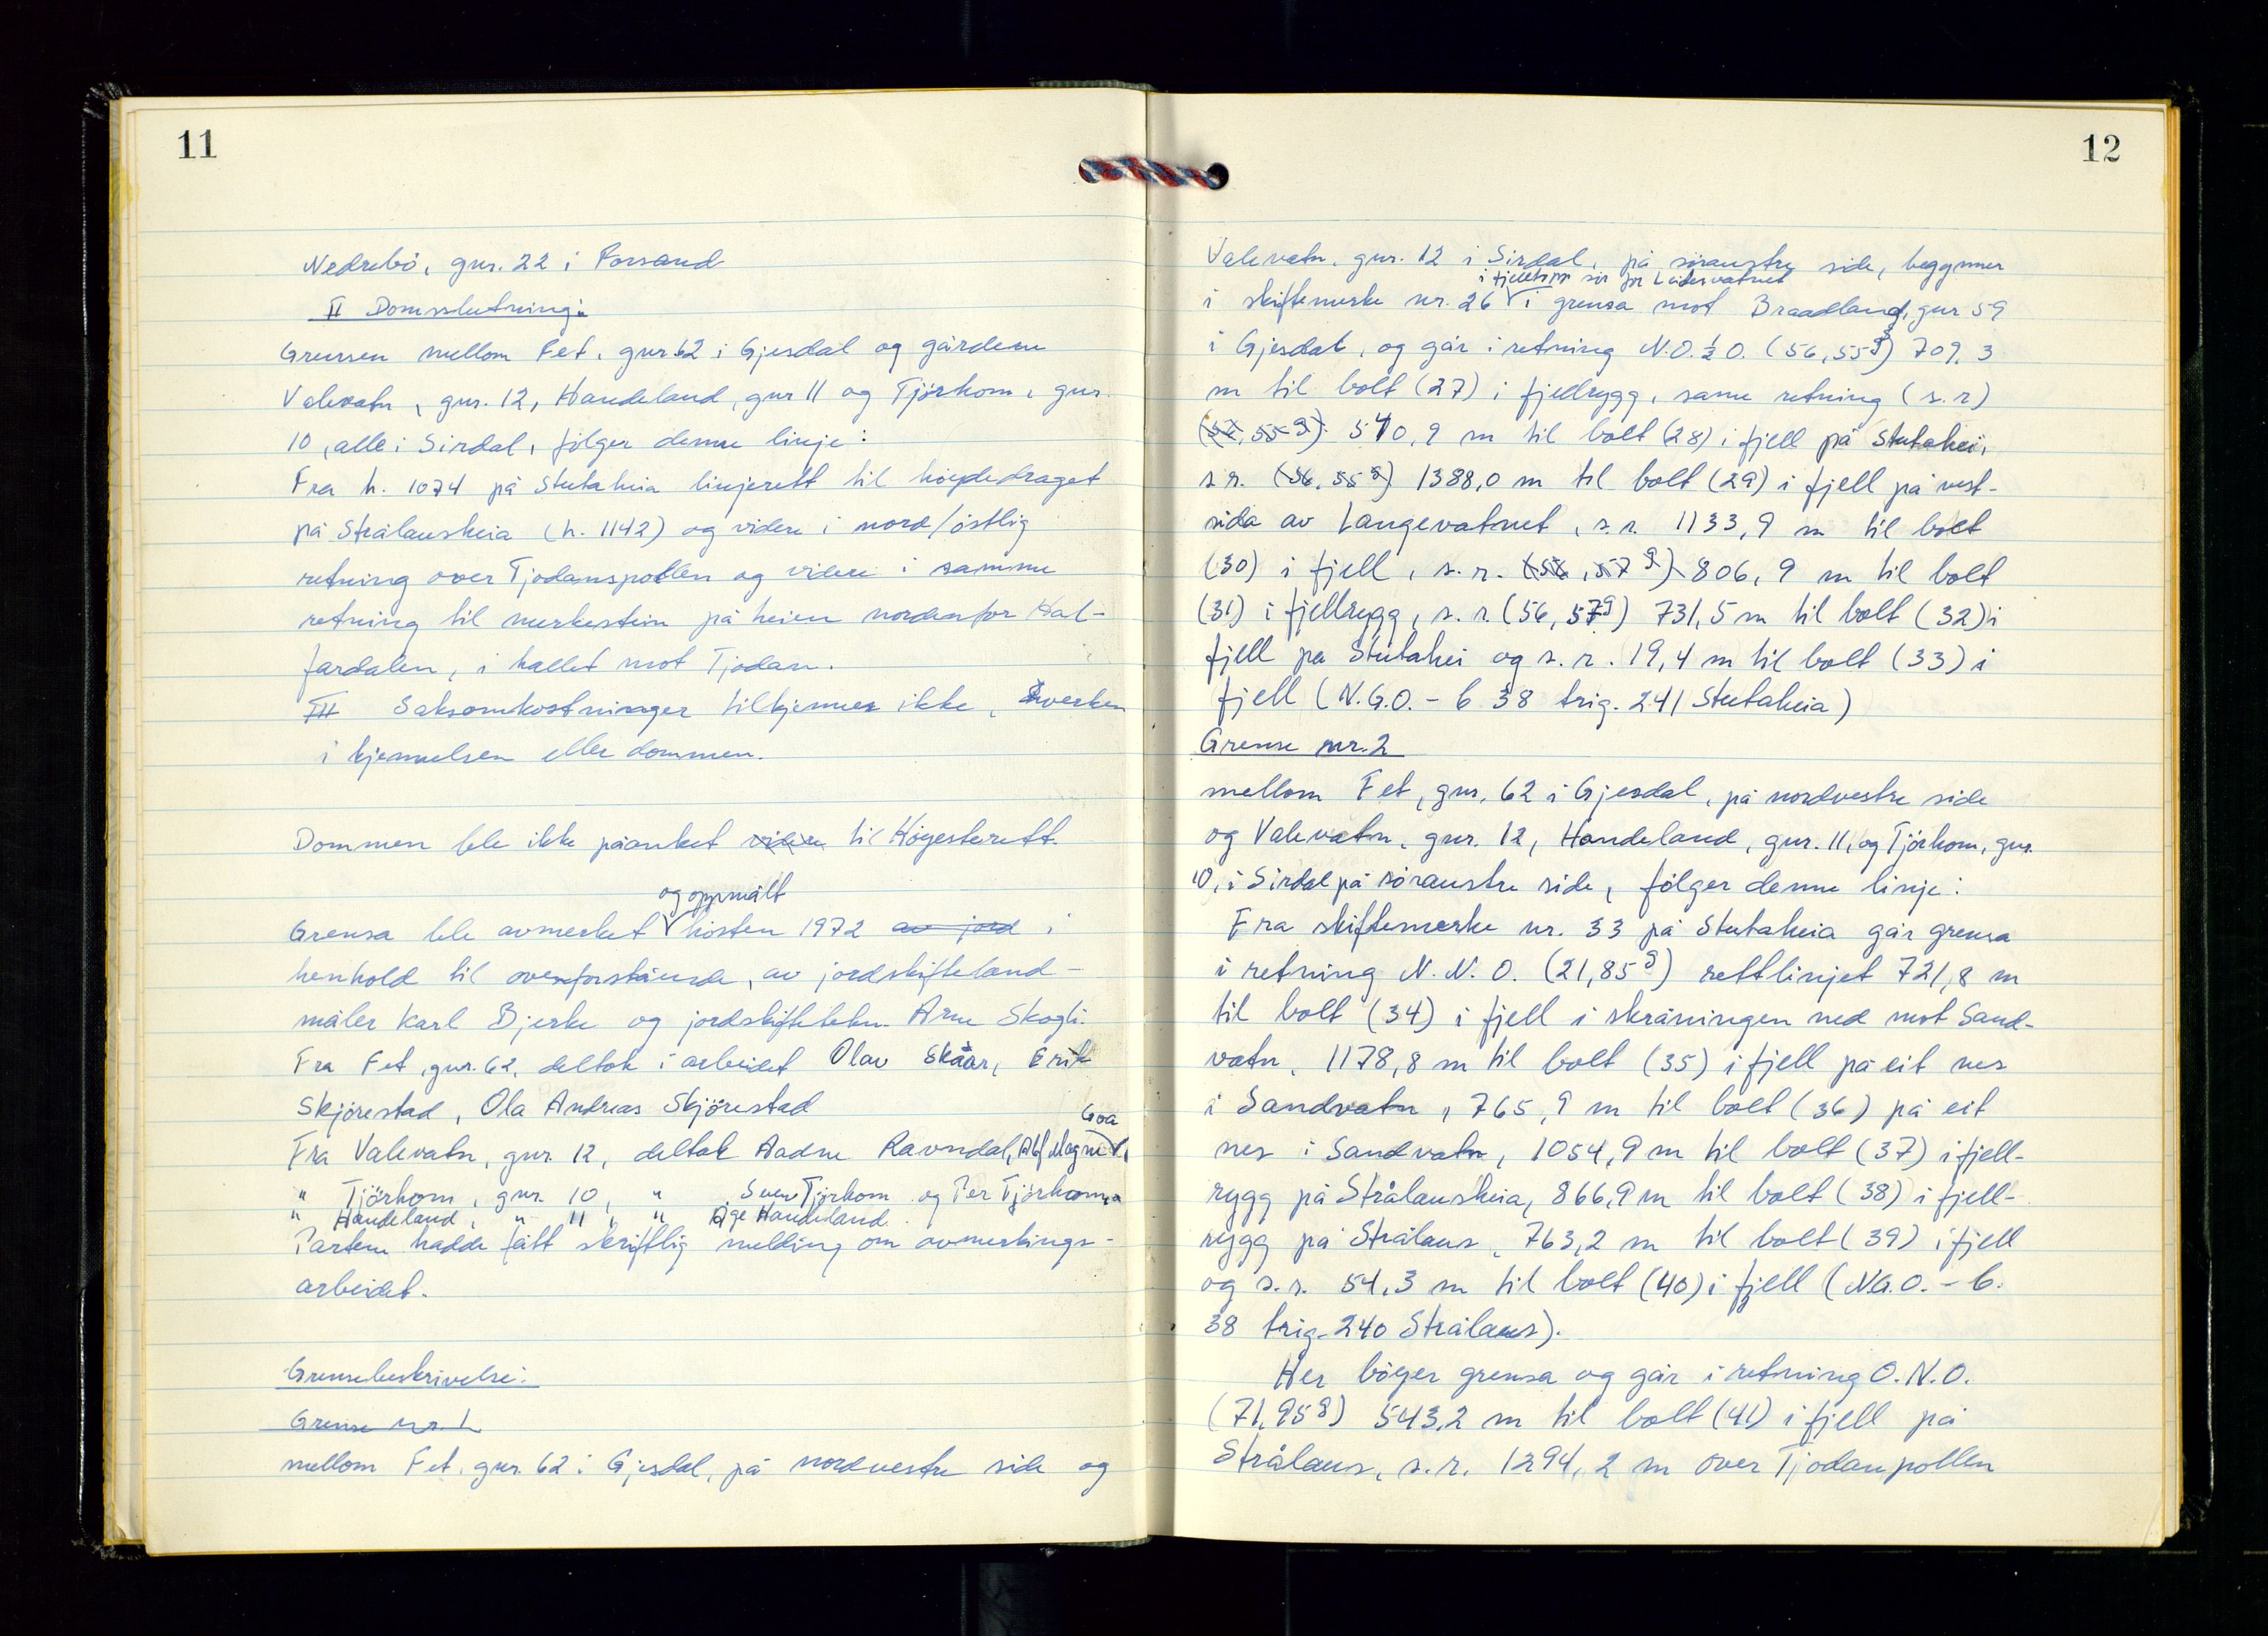 11
Nedrebö, gnr. 22 i Forsand
II Domsslutning:
Grensen mellom Fet, gnr. 62 i Gjesdal og gårdene
Valevatn, gnr. 12, Handeland, gnr 11 og Tjörhom, gnr.
10, alle i Sirdal, fölger denne linje:
Fra h. 1074 på Stutaheia linjerett til höydedraget
på Strålausheia (h. 1142) og videre i nord/östlig
retning over Tjodanspollen og videre i samme
retning til merkestein på heien nordenfor Hal-
fardalen, i hallet mot Tjodan.
III Saksomkostninger tilkjennes ikke, hverken
i kjennelsen eller dommen.
Dommen ble ikke påanket videre til Högesterett.
og oppmålt
Grensa ble avmerket hösten 1972 av jord i
henhold til ovenforstående, av jordskifteland-
måler Karl Bjerke og jordskiftetekn. Arne Skogli.
Fra Fet, gnr. 62, deltok i arbeidet Olav Skåar, Erik
Skjörestad, Ola Andreas Skjörestad
Goa
Fra Valevatn, gnr. 12, deltok Aadne Ravndal, Alf Magne
" Tjörhom, gnr. 10, " Sven Tjörhom og Per Tjörhom
" Handeland, " 11, " Åge Handeland.
Partene hadde fått skriftlig melding om avmerkings-
arbeidet.
Grensebeskrivelse:
Grense nr. 1
mellom Fet, gnr. 62 i Gjesdal, på nordvestre side og
12
Valevatn, gnr. 12 i Sirdal, på söraustre side, begynner
i fjelltopp sör for Leidesvatnet
i skiftemerke nr. 26 i grensa mot Braadland, gnr 59
i Gjesdal, og går i retning N.O. ½ O. (56,55g) 709,3
m til bolt (27) i fjellrygg, same retning (s.r)
(57,55g) 540,9 m til bolt (28) i fjell på Stutahei,
s.r. (56,55g) 1388,0 m til bolt (29) i fjell på vest-
sida av Langevatnet, s.r. 1133,9 m til bolt
(30) i fjell, s.r. (56,57g) 806,9 m til bolt
(31) i fjellrygg, s.r. (56,57g) 731,5 m til bolt (32) i
fjell på Stutahei og s.r. 19,4 m til bolt (33) i
fjell (N.G.O. - b 38 trig. 241 Stutaheia)
Grense nr. 2
mellom Fet, gnr. 62 i Gjesdal, på nordvestre side
og Valevatn, gnr. 12, Handeland, gnr. 11, og Tjörhom, gnr.
10, i Sirdal på söraustre side, fölger denne linje:
Fra skiftemerke nr. 33 på Stutaheia går grensa
i retning N.N.O. (21,85g) rettlinjet 721,8 m
til bolt (34) i fjell i skråningen ned mot Sand-
vatn, 1178,8 m til bolt (35) i fjell på eit nes
i Sandvatn, 765,9 m til bolt (36) på eit
nes i Sandvatn, 1054,9 m til bolt (37) i fjell-
rygg på Strålausheia, 866,9 m til bolt (38) i fjell-
rygg på Strålaus, 763,2 m til bolt (39) i fjell
og s.r. 54,3 m til bolt (40) i fjell (N.G.O. - b.
38 trig. 240 Strålaus).
Her böyer grensa og går i retning O.N.O.
(71,95g) 543,2 m til bolt (41) i fjell på
Strålaus, s.r. 1294,2 m over Tjodanpollen